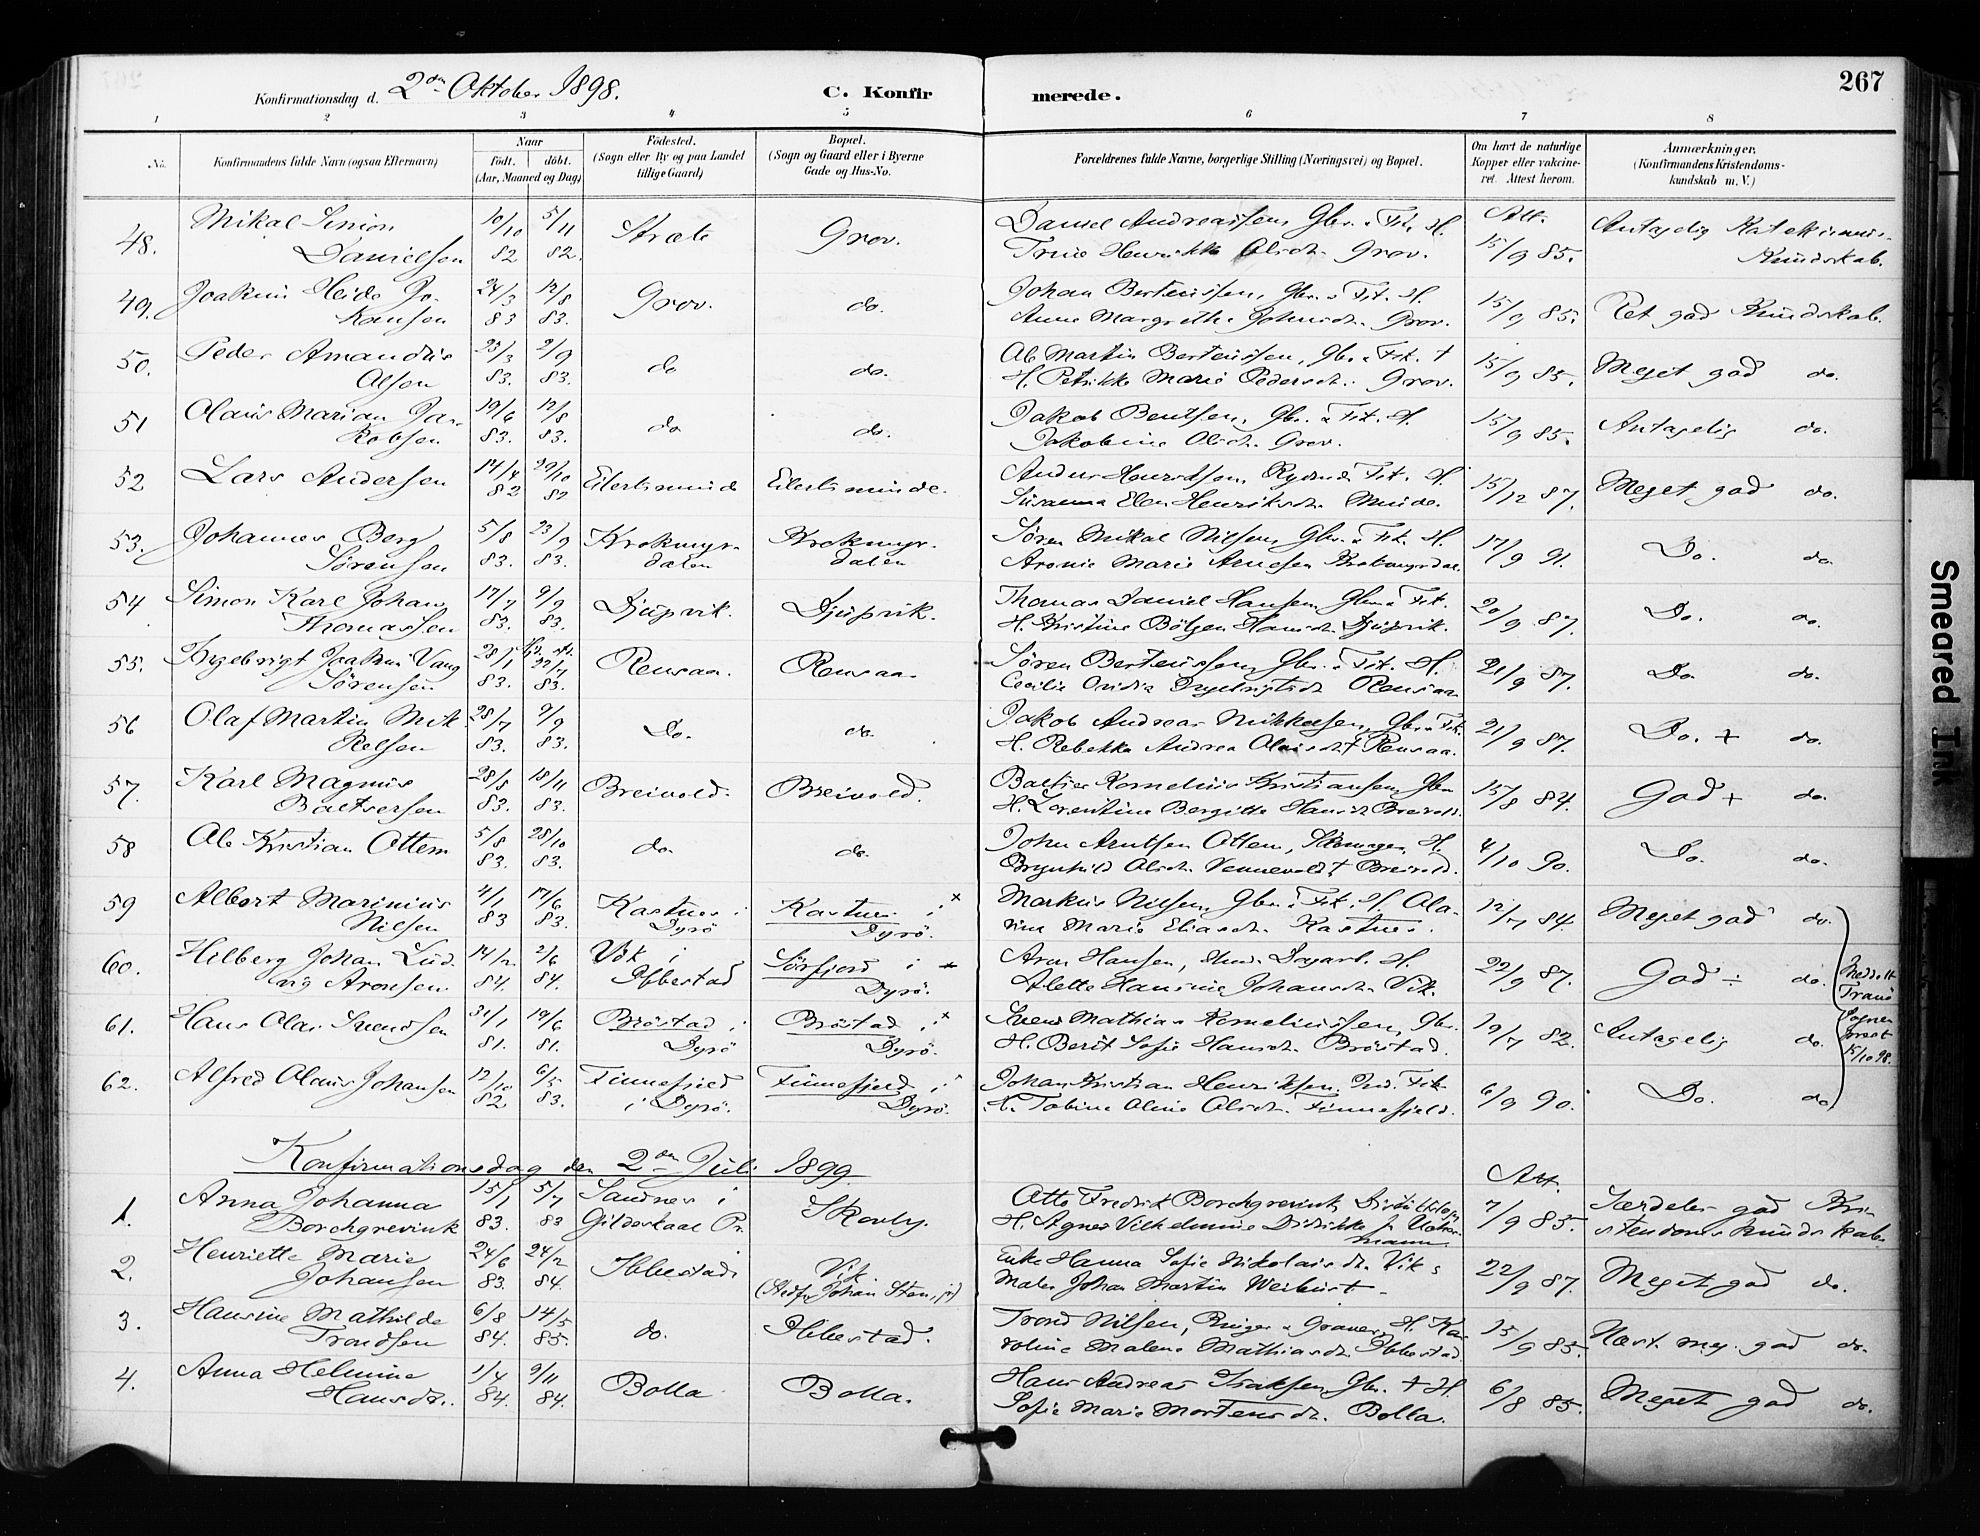 267
Konfirmationsdag d. 2den Oktober 1898.
C. Konfirmerede.
1 2 3 4 5 6 7 8
No.
Konfirmandens fulde Navn (ogsaa Efternavn)
Naar
födt. döbt.
(Aar, Maaned og Dag)
Födested.
(Sogn eller By og paa Landet
tillige Gaard)
Bopæl.
(Sogn og Gaard eller i Byerne
Gade og Hus-No.
Forældrenes fulde Navne, borgerlige Stilling (Næringsvei) og Bopæl.
Om havt de naturlige
Kopper eller vakcine-
ret. Attest herom.
Anmærkninger.
(Konfirmandens Kristendoms-
kundskab m. V.)
48. Mikal Simon 10/10 5/11 Stræte Grov. Daniel Andreassen, Gbr. & Fisk. H. Att. Antagelig Katekismus-
Danielsen 82 82. Trine Henrikke Olsdtr. Grov. 15/9 85. Kundskab.
49. Joakim Heide Jo- 24/3 12/8 Grov. do. Johan Berteussen, Gbr. & Fisk. H. 15/9 85. Ret god Kundskab.
hansen 83 83. Anne Margrethe Johnsdtr. Grov.
50. Peder Amandus 23/3 2/9 do do. Ole Martin Berteussen, Gbr. & Fisk. + 15/9 85. Meget god do.
Olsen 83. 83. H. Petrikke Marie Pedersdtr. Grov.
51 Olaus Marian Ja- 19/6 12/8 do do. Jakob Bentsen, Gbr. & Fisk. H. 15/9 85. Antagelig do.
kobsen 83. 83. Jakobine Olsdtr. Grov.
52 Lars Andersen 14/4 29/10 Eilertsminde Eilertsminde. 15/12 87. Meget god do.
82 82 Susanna Ellen Henriksdtr. Minde.
53. Johannes Berg 5/8 23/9 Krokmyr- Krokmyr- Søren Mikal Nilsen, Gbr. & Fisk. H. 17/9 91. Do. do.
Sørensen 83. 83. dalen dalen Aronie Marie Arnesen Krokmyrdal.
54 Simon Karl Johan 17/7 9/9 Djupvik. Djupvik. Thomas Daniel Hansen, Gbr. & Fisk. 20/9 87. Do. do.
Thomassen 83. 83. H. Kristine Bölgen Hansdtr. Djupvik.
55. Ingebrigt Joakim Vang 28/1 22/7 Rensaa. Rensaa. Søren Berteussen, Gbr. & Fisk. H. 21/9 87. Do do.
Sørensen 83. 83. Cecilie Ovidia Ingebrigtsdtr. Rensaa
56 Olaf Martin Mik- 28/7 9/9 Do. do. Jakob Andreas Mikkelsen, Gbr. & Fisk. 21/9 87. Do. + do.
kelsen 83. 83. H. Rebekka Andrea Olausdtr. Rensaa.
57. Karl Magnus 28/8 18/11 Breivold. Breivold. Baltser Kornelius Kristiansen, Gbr. 15/8 84. God + do.
Baltsersen 83. 83. H. Lorentine Bergitte Hansdtr. Breivold.
58 Ole Kristian Ottem 5/8 28/10 do. do. John Arntsen Ottem, H. 4/10 90. Do. do.
83. 83. Brynhild Olsdtr. Vennevold + Breivold.
59 Albert Marinius 4/1 17/6 Kastnes i Kastnes i × Markus Nilsen, Gbr. & Fisk. H. Ola- 12/7 84. Meget god do.
Nilsen 83 83. Dyrö Dyrö. vine Marie Eliasdtr. Kastnes.
60. Hilberg Johan Lud- 14/2 2/6 Vik i Sörfjord i × Aron Hansen, H. 22/9 87. God ÷ do.
vig Aronsen. 84. 84. Ibbestad Dyrö. Alette Hansine Johansdtr. Vik.
61. Hans Olai Svendsen 31/1 19/6 Bröstad i Bröstad i × Svend Mathias Korneliussen, Gbr. 19/7 82. Antagelig do.
81. 81. Dyrö Dyrö. H. Berit Sofie Hansdtr. Bröstad.
62. Alfred Olaus Johansen 12/10 6/5 Finnefjeld Finnefjeld i Johan Kristian Henriksen, Ind. Fisk. 6/9 90. Do. do
82 83. i Dyrö. Dyrö. H. Tobine Oline Olsdtr. Finnefjeld.
Meddelt
Tranö
Sogne-
prest
5/10 98.
Konfirmationsdag den 2den Juli 1899.
1. Anna Johanna 15/1 5/7 Sandnes i Skovly. Otto Fredrik Borchgrevink, Att. Særdeles god Kri-
Borchgrevink 83. 83 Gildeskaal Pr. H. Agnes Vilhelmine Didrikke f. 7/9 85. stendomskundskab.
2. Henriette Marie 24/6 24/2 Ibbestad Vik Enke Hanna Sofie Nikolaisdtr. Vik & 22/9 87. Meget god do.
Johansen 83. 84. (Stedf. Johan Sten, ) Maler Johan Martin
3. Hansine Mathilde 6/8 14/5 do. Ibbestad. Trond Nilsen, Ringer & Graver, H. Ka- 15/9 85. Næst. meg. god do.
Trondsen 84. 85. roline Malene Mathiasdtr. Ibbestad.
4. Anna Helmine 1/4 9/11 Bolla Bolla. Hans Andreas Isaksen, Gbr. + H. 6/8 85. Meget god do.
Hansdtr. 84. 84. Sofie Marie Mortensdtr. Bolla.
Smeared Ink